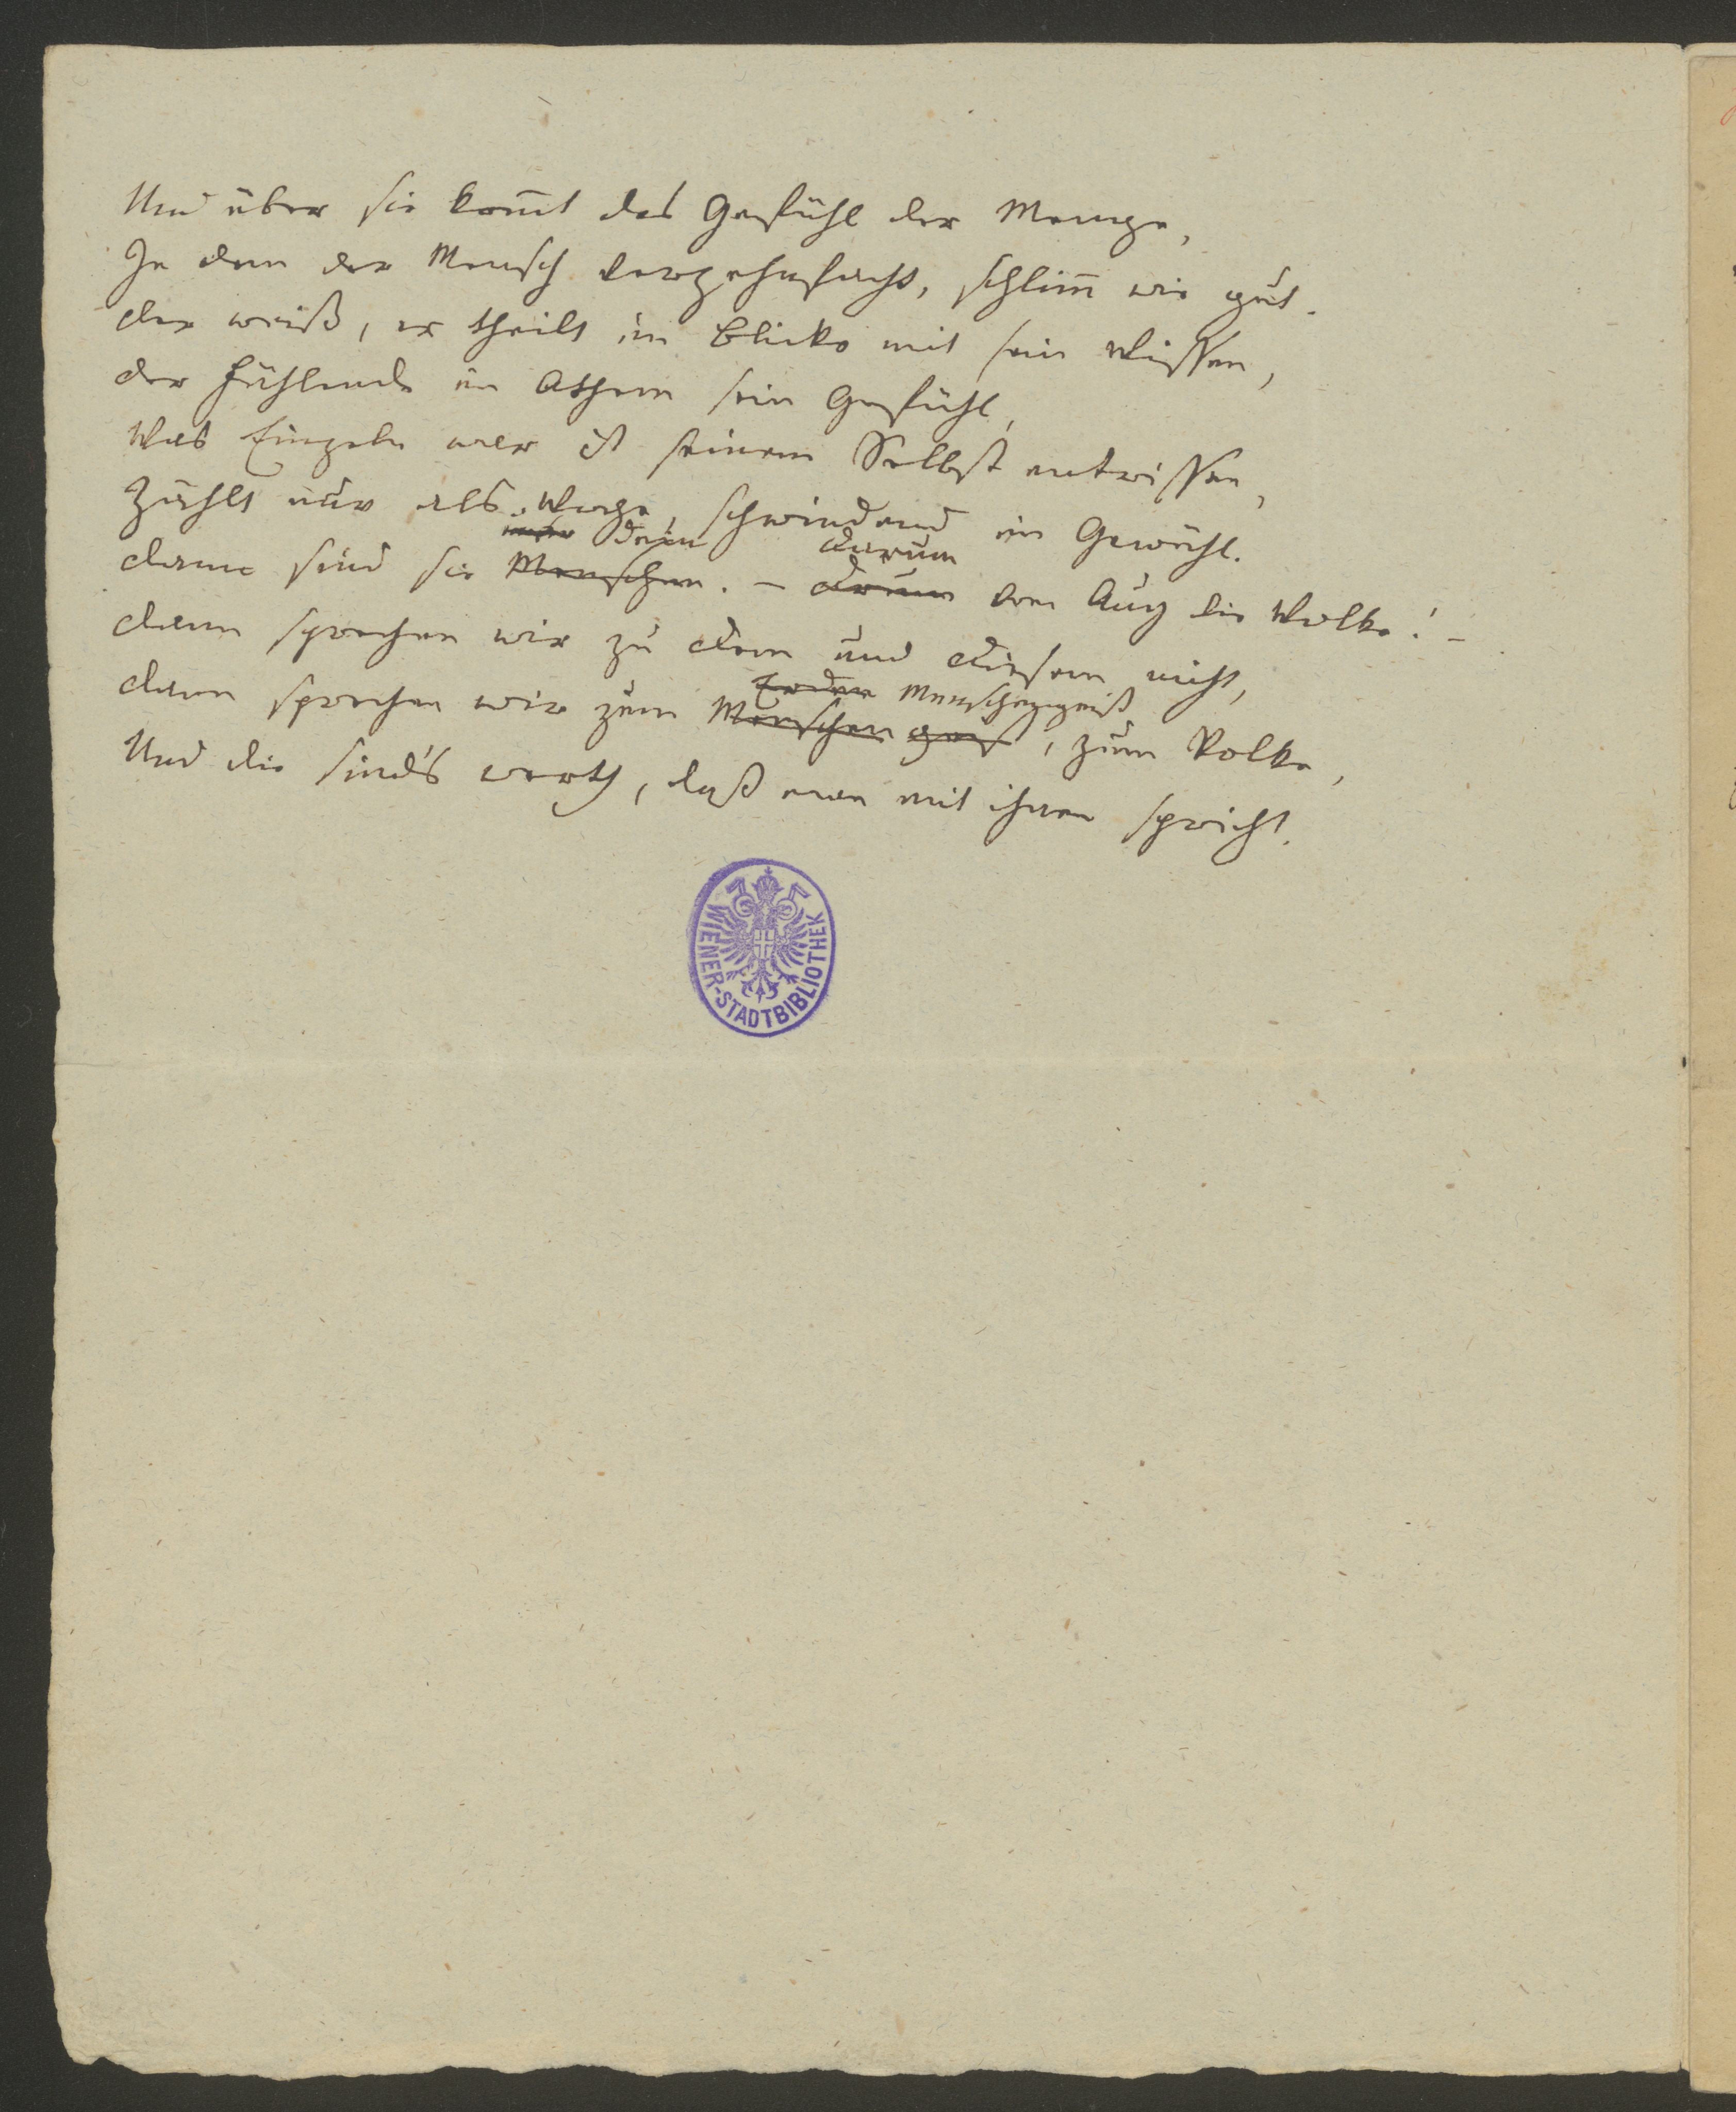 Und über sie kom̅t das Gefühl der Menge,
In dem der Mensch verzehnfacht, schlim̅ wie gut.
Der weiß, er theilt im Blicke mit sein Wissen,
Der Fühlende im Athem sein Gefühl,
Was Einzeln war ist seinem Selbst entrissen,
Zählt nur als Woge, schwindend im Gewühl.
mehr darum
Dann sind sie Menschen. – Drum vom Aug die Wolke! –
Dann sprechen wir zu Dem und Diesem nicht,
Menschengeist
Dann sprechen wir zum Menschen geist, zum Volke,
Und die sind's werth, daß man mit ihnen spricht.
WIENER-STADTBIBLIOTHEK